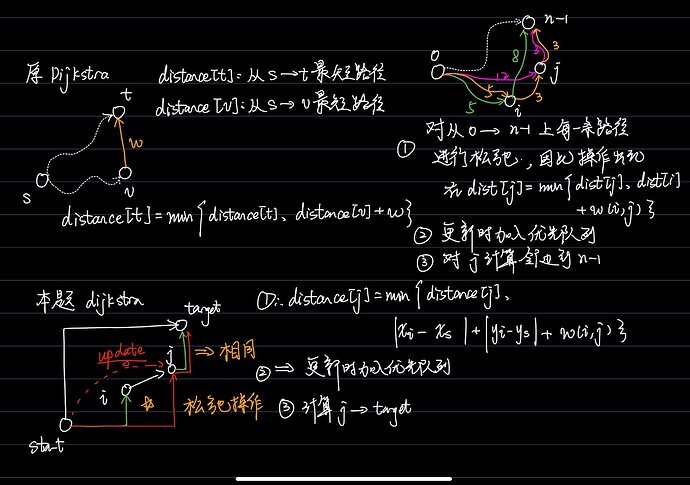 原 Dijkstra
distance[t]: 从 s → t 最短路径
distance[v]: 从 s → v 最短路径
t
w
s
v
distance[t] = min{ distance[t]、distance[v] + w }
n-1
8
3
3
0
12
j
5
5
i
3
① 对从 0 → n-1 上每一条路径
进行松弛，因此操作出现
在 dist[j] = min{ dist[j]、dist[i]
+ w(i,j) }
② 更新时加入优先队列
③ 对 j 计算 到 n-1
本题 dijkstra
target
update
j
⇒ 相同
i
☆ 松弛操作
start
①∴ distance[j] = min{ distance[j]、
|xi - xs| + |yi - ys| + w(i,j) }
② ⇒ 更新时加入优先队列
③ 计算 j → target